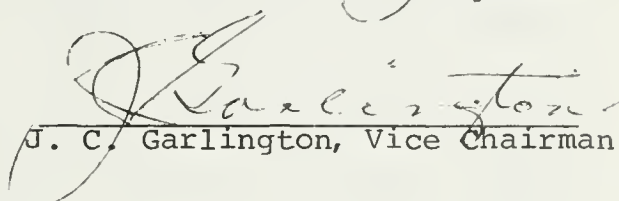 J C Garlington
J. C. Garlington, Vice Chairman